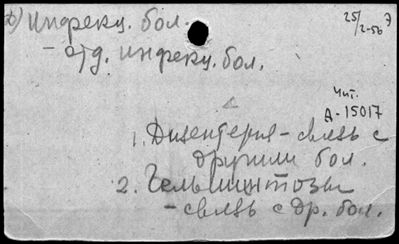 б) инфекц. бол.
25/2-56 Э
- отд. инфекц. бол.
Чит.
А-15017
1. Дизентерия - связь с
другими бол.
2. Гельминтозы
- связь с др. бол.